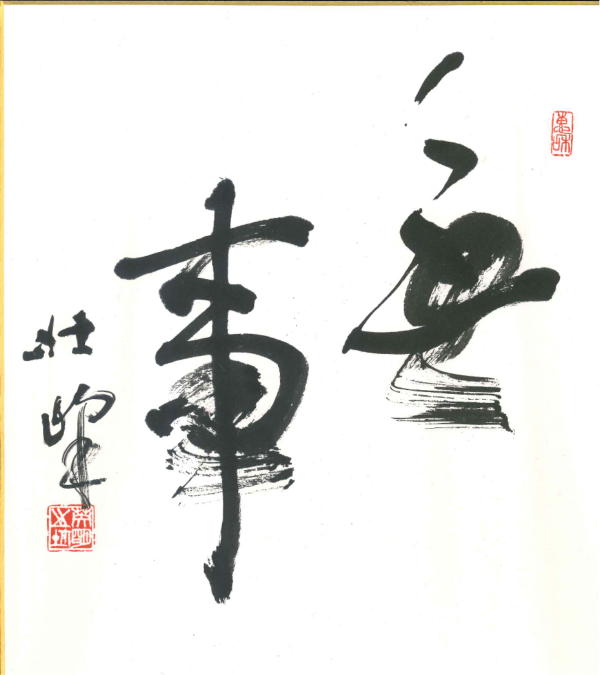 無事
壮峰